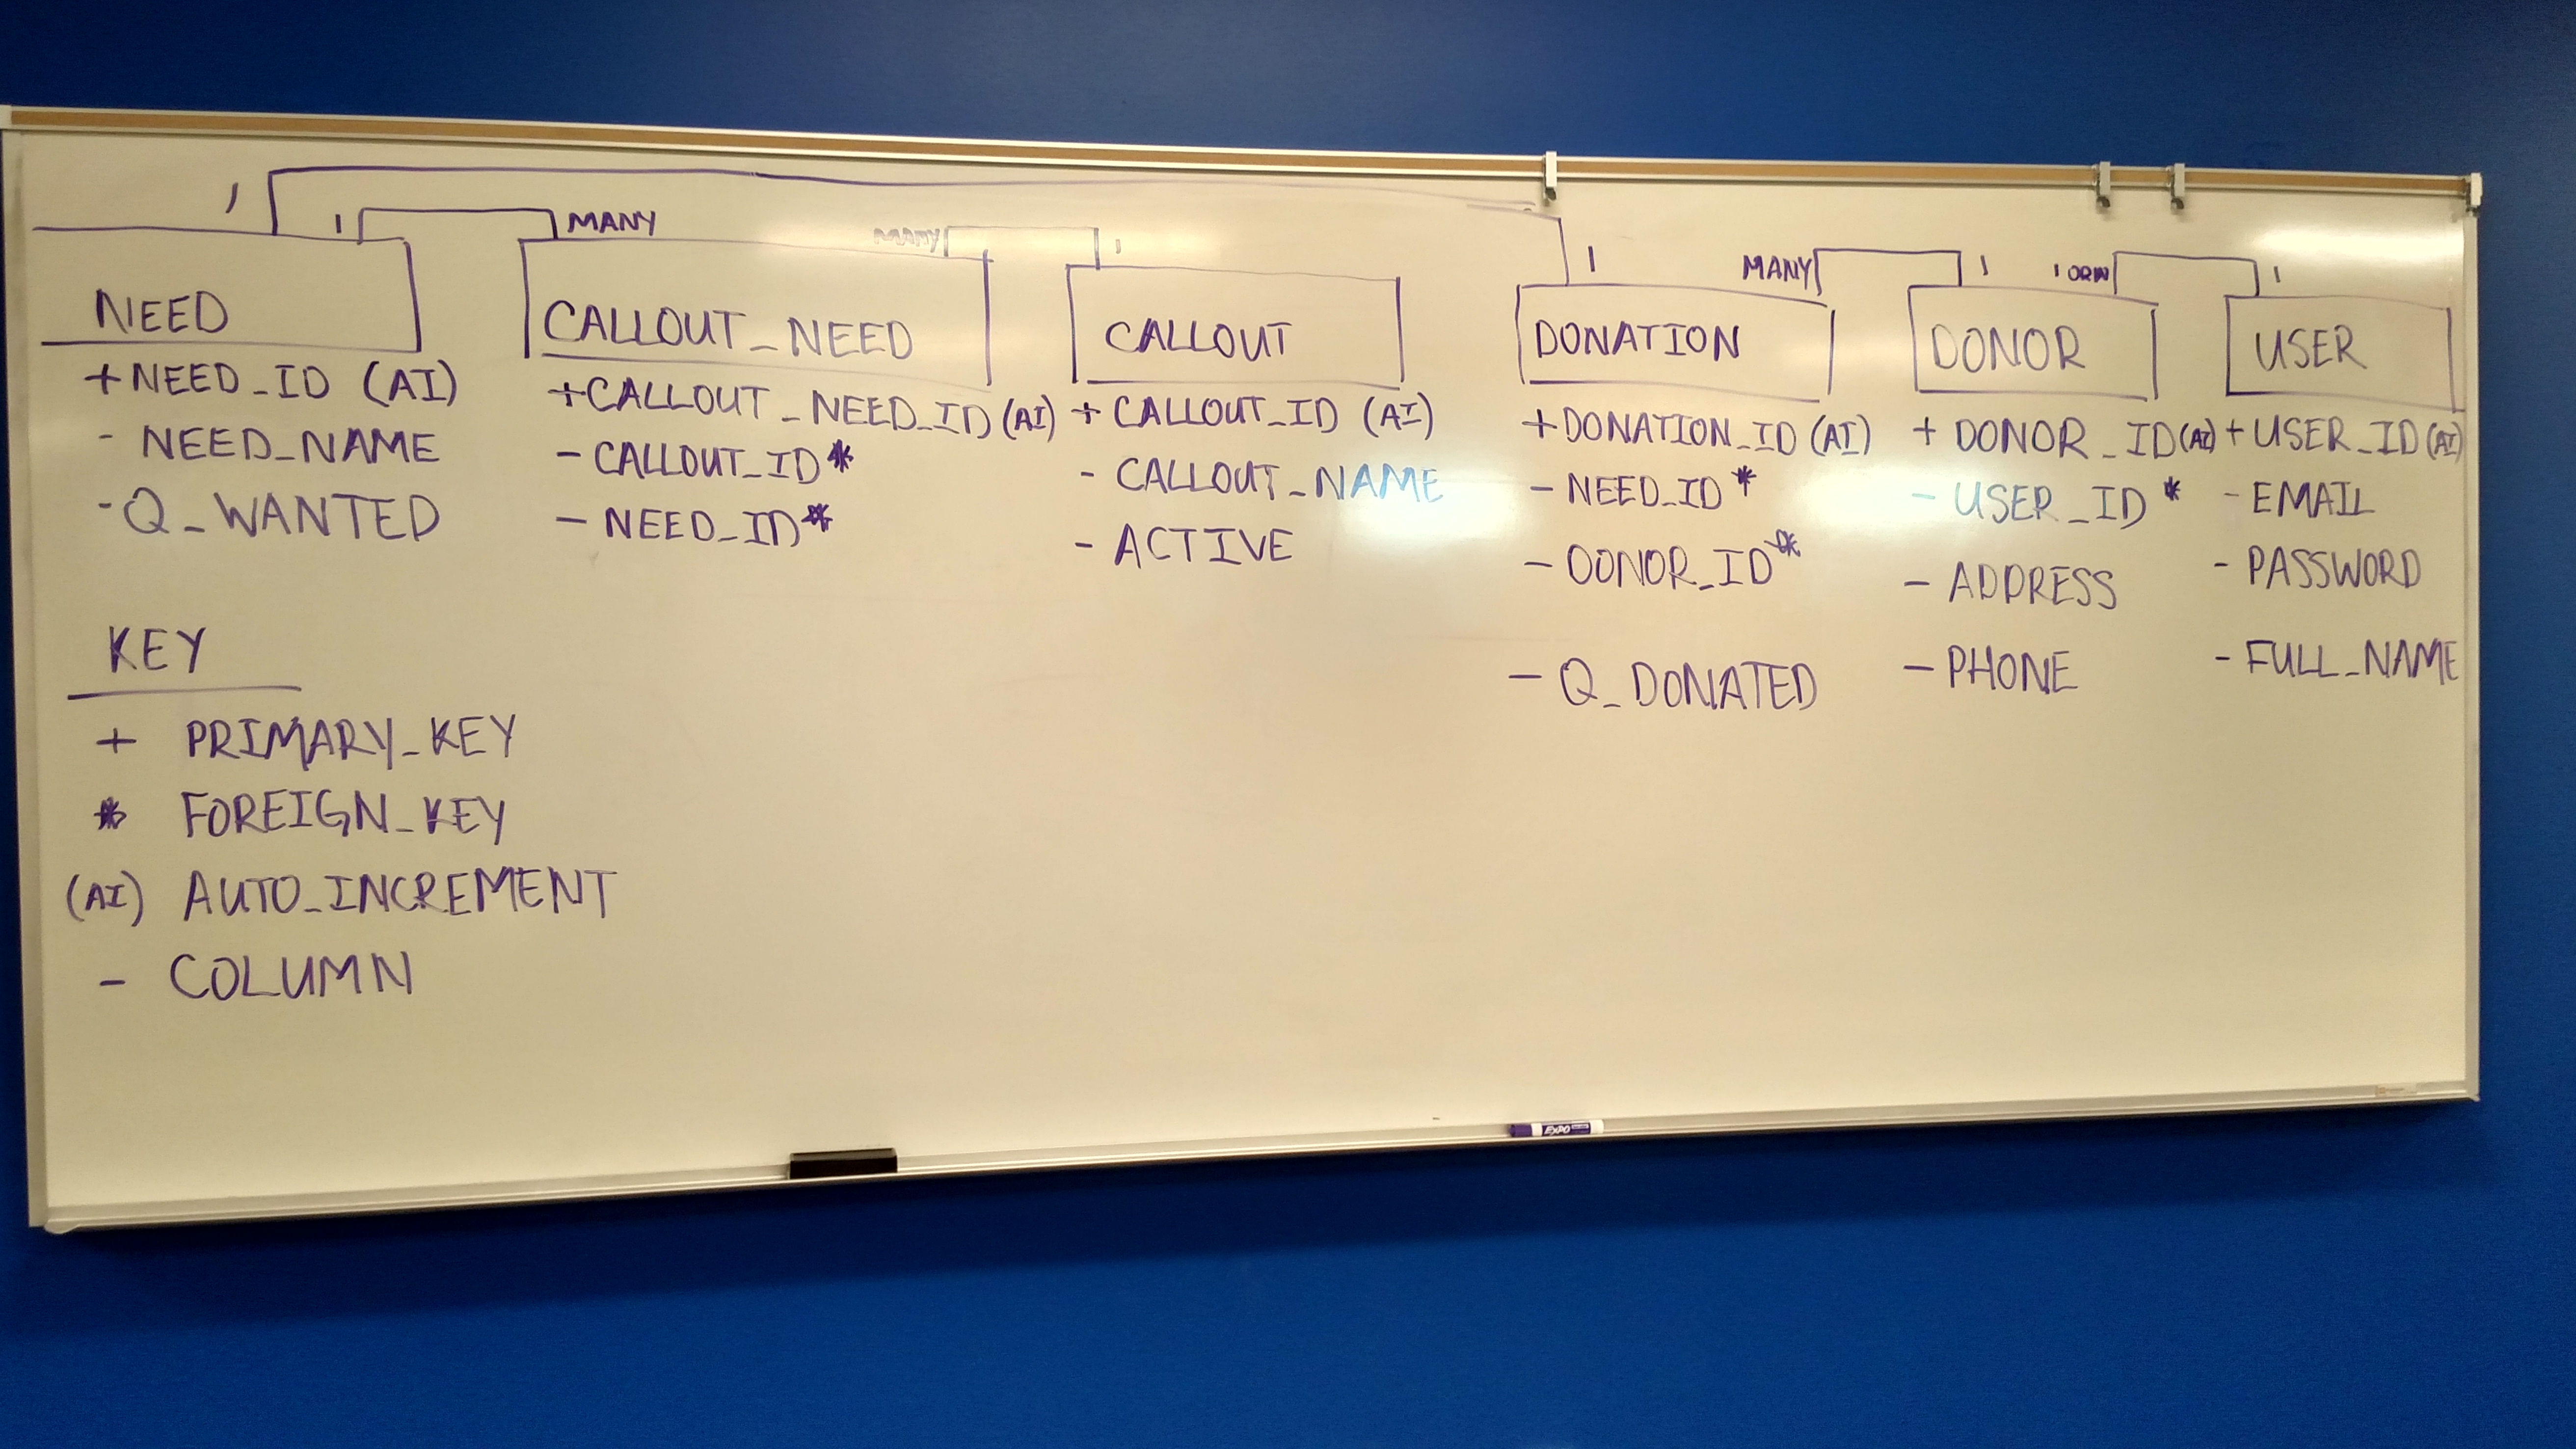 1
1
MANY
MANY
1
1
MANY
1
1 OR
1
NEED
+ NEED_ID (AI)
- NEED_NAME
- Q_WANTED
CALLOUT_NEED
+ CALLOUT_NEED_ID (AI)
- CALLOUT_ID *
- NEED_ID *
CALLOUT
+ CALLOUT_ID (AI)
- CALLOUT_NAME
- ACTIVE
DONATION
+ DONATION_ID (AI)
- NEED_ID *
- DONOR_ID *
- Q_DONATED
DONOR
+ DONOR_ID (AI)
- USER_ID *
- ADDRESS
- PHONE
USER
+ USER_ID (AI)
- EMAIL
- PASSWORD
- FULL_NAME
KEY
+ PRIMARY_KEY
* FOREIGN_KEY
(AI) AUTO_INCREMENT
- COLUMN
EXPO